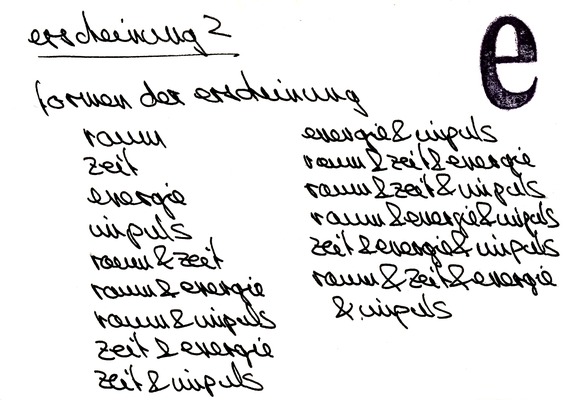 erscheinung 2
e
formen der erscheinung
raum
zeit
energie
impuls
raum & zeit
raum & energie
raum & impuls
zeit & energie
zeit & impuls
energie & impuls
raum & zeit & energie
raum & zeit & impuls
raum & energie & impuls
zeit & energie & impuls
raum & zeit & energie
& impuls